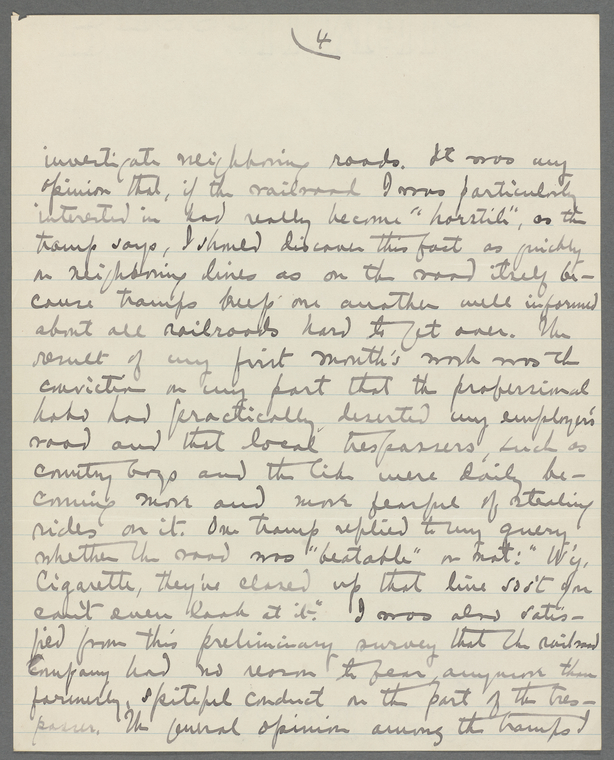 4
investigate neighboring roads. It was my
opinion that, if the railroad I was particularly
interested in had really become "horstile", as the
tramp says, I should discover this fact as quickly
on neighboring lines as on the road itself be-
cause tramps keep one another well informed
about all railroads hard to get over. The
result of my first month's work was the
conviction on my part that the professional
hobo had practically deserted my employer's
road and that local trespassers, such as
country boys and the like were daily be-
coming more and more fearful of stealing
rides on it. One tramp replied to my query
whether the road was "beatable" or not: "W'y,
Cigarette, they've closed up that line so's't you
can't even look at it." I was also satis-
fied from this preliminary survey that the railroad
company had no reason to fear, anymore than
formerly, spiteful conduct on the part of the tres-
passer. The general opinion among the tramps I